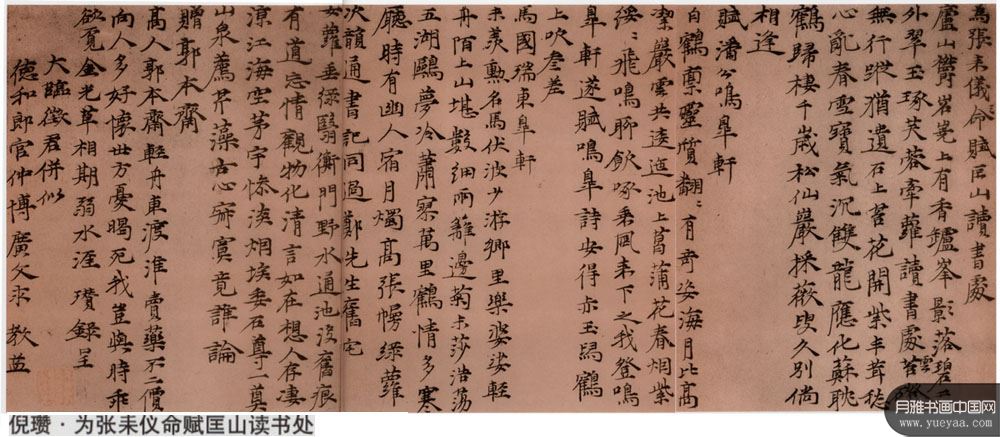 為張耒儀命賦匡山讀書處
廬山鬱岧嶤上有香鑪峯影落碧雲
外翠玉琢芙蓉牽蘿讀書處
無行蹤猶遺石上苔花開紫丰茸愁
心亂春雪寶氣沉雙龍應化蘇耽
鶴歸棲千歲松仙巖採薇叟久別尚
相逢
賦潘公鳴皐軒
白鶴稟靈質翩〻有奇姿海月比高
潔巖雲共逶迤池上菖蒲花春烟紫
綏〻飛鳴聊飲啄乘風来下之我登鳴
皐軒遂賦鳴皐詩安得赤玉舄鶴
上吹參差
馬國瑞東皐軒
未羨勲名馬伏波少游鄉里樂婆娑輕
舟陌上山堪數細雨籬邊菊未莎浩蕩
五湖鷗夢冷蕭寥萬里鶴情多寒
廳時有幽人宿月燭高張幔綠蘿
次韻通書記同過鄭先生舊宅
女蘿垂綠翳衡門野水通池沒舊痕
有道忘情觀物化清言如在想人存凄
涼江海空茅宇慘淡烟埃垂石尊一奠
山泉薦芹藻古心寂寞竟誰論
贈郭本齋
高人郭本齋輕舟東渡淮賣藥不二價
向人多好懷世方憂暍死我豈與時乖
欲覓金光草相期弱水涯 瓚錄呈
大臨徵君併似
德和郎官仲博廣文求 教益
倪瓒·为张耒仪命赋匡山读书处
月雅书画中国网
www.yueyaa.com